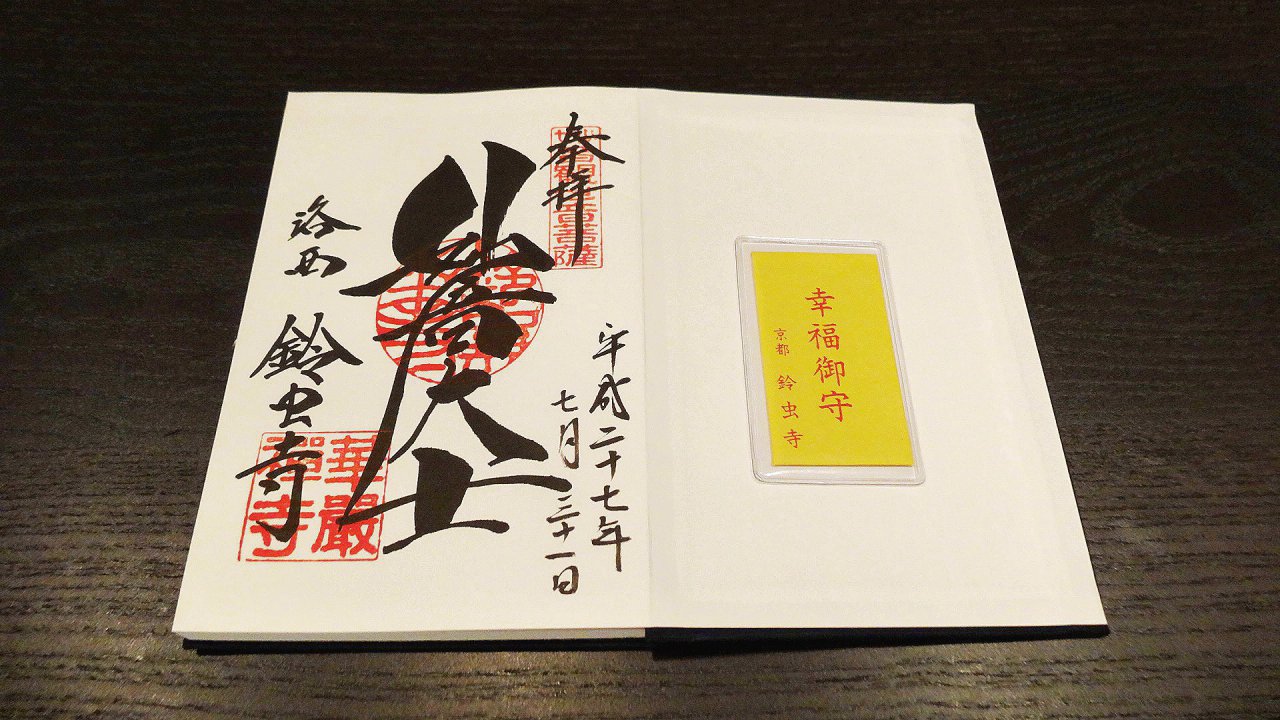 幸福御守
京都 鈴虫寺
奉拝
平成二十七年
七月三十一日
大士
洛西 鈴虫寺
華嚴
禪寺